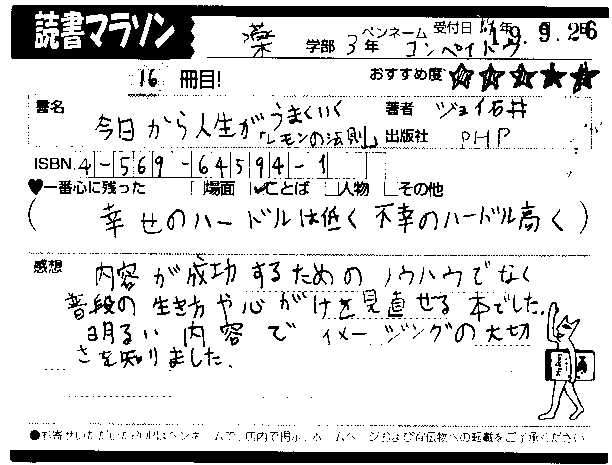 読書マラソン
薬 学部 3年 ペンネーム コンペイトウ 受付日 年 9.26
16 冊目! おすすめ度 ★★★★★
書名 今日から人生がうまくいく「レモンの法則」
著者 ジョイ石井
出版社 PHP
ISBN 4-569-64594-1
♥一番心に残った 場面 ✓ことば 人物 その他
( 幸せのハードルは低く 不幸のハードル高く )
感想 内容が成功するためのノウハウでなく
普段の生き方や心がけを見直せる本でした。
明るい内容でイメージングの大切
さを知りました。
●お寄せいただいたPOPはペンネームで、店内で掲示、ホームページおよび宣伝物への転載をご了承ください